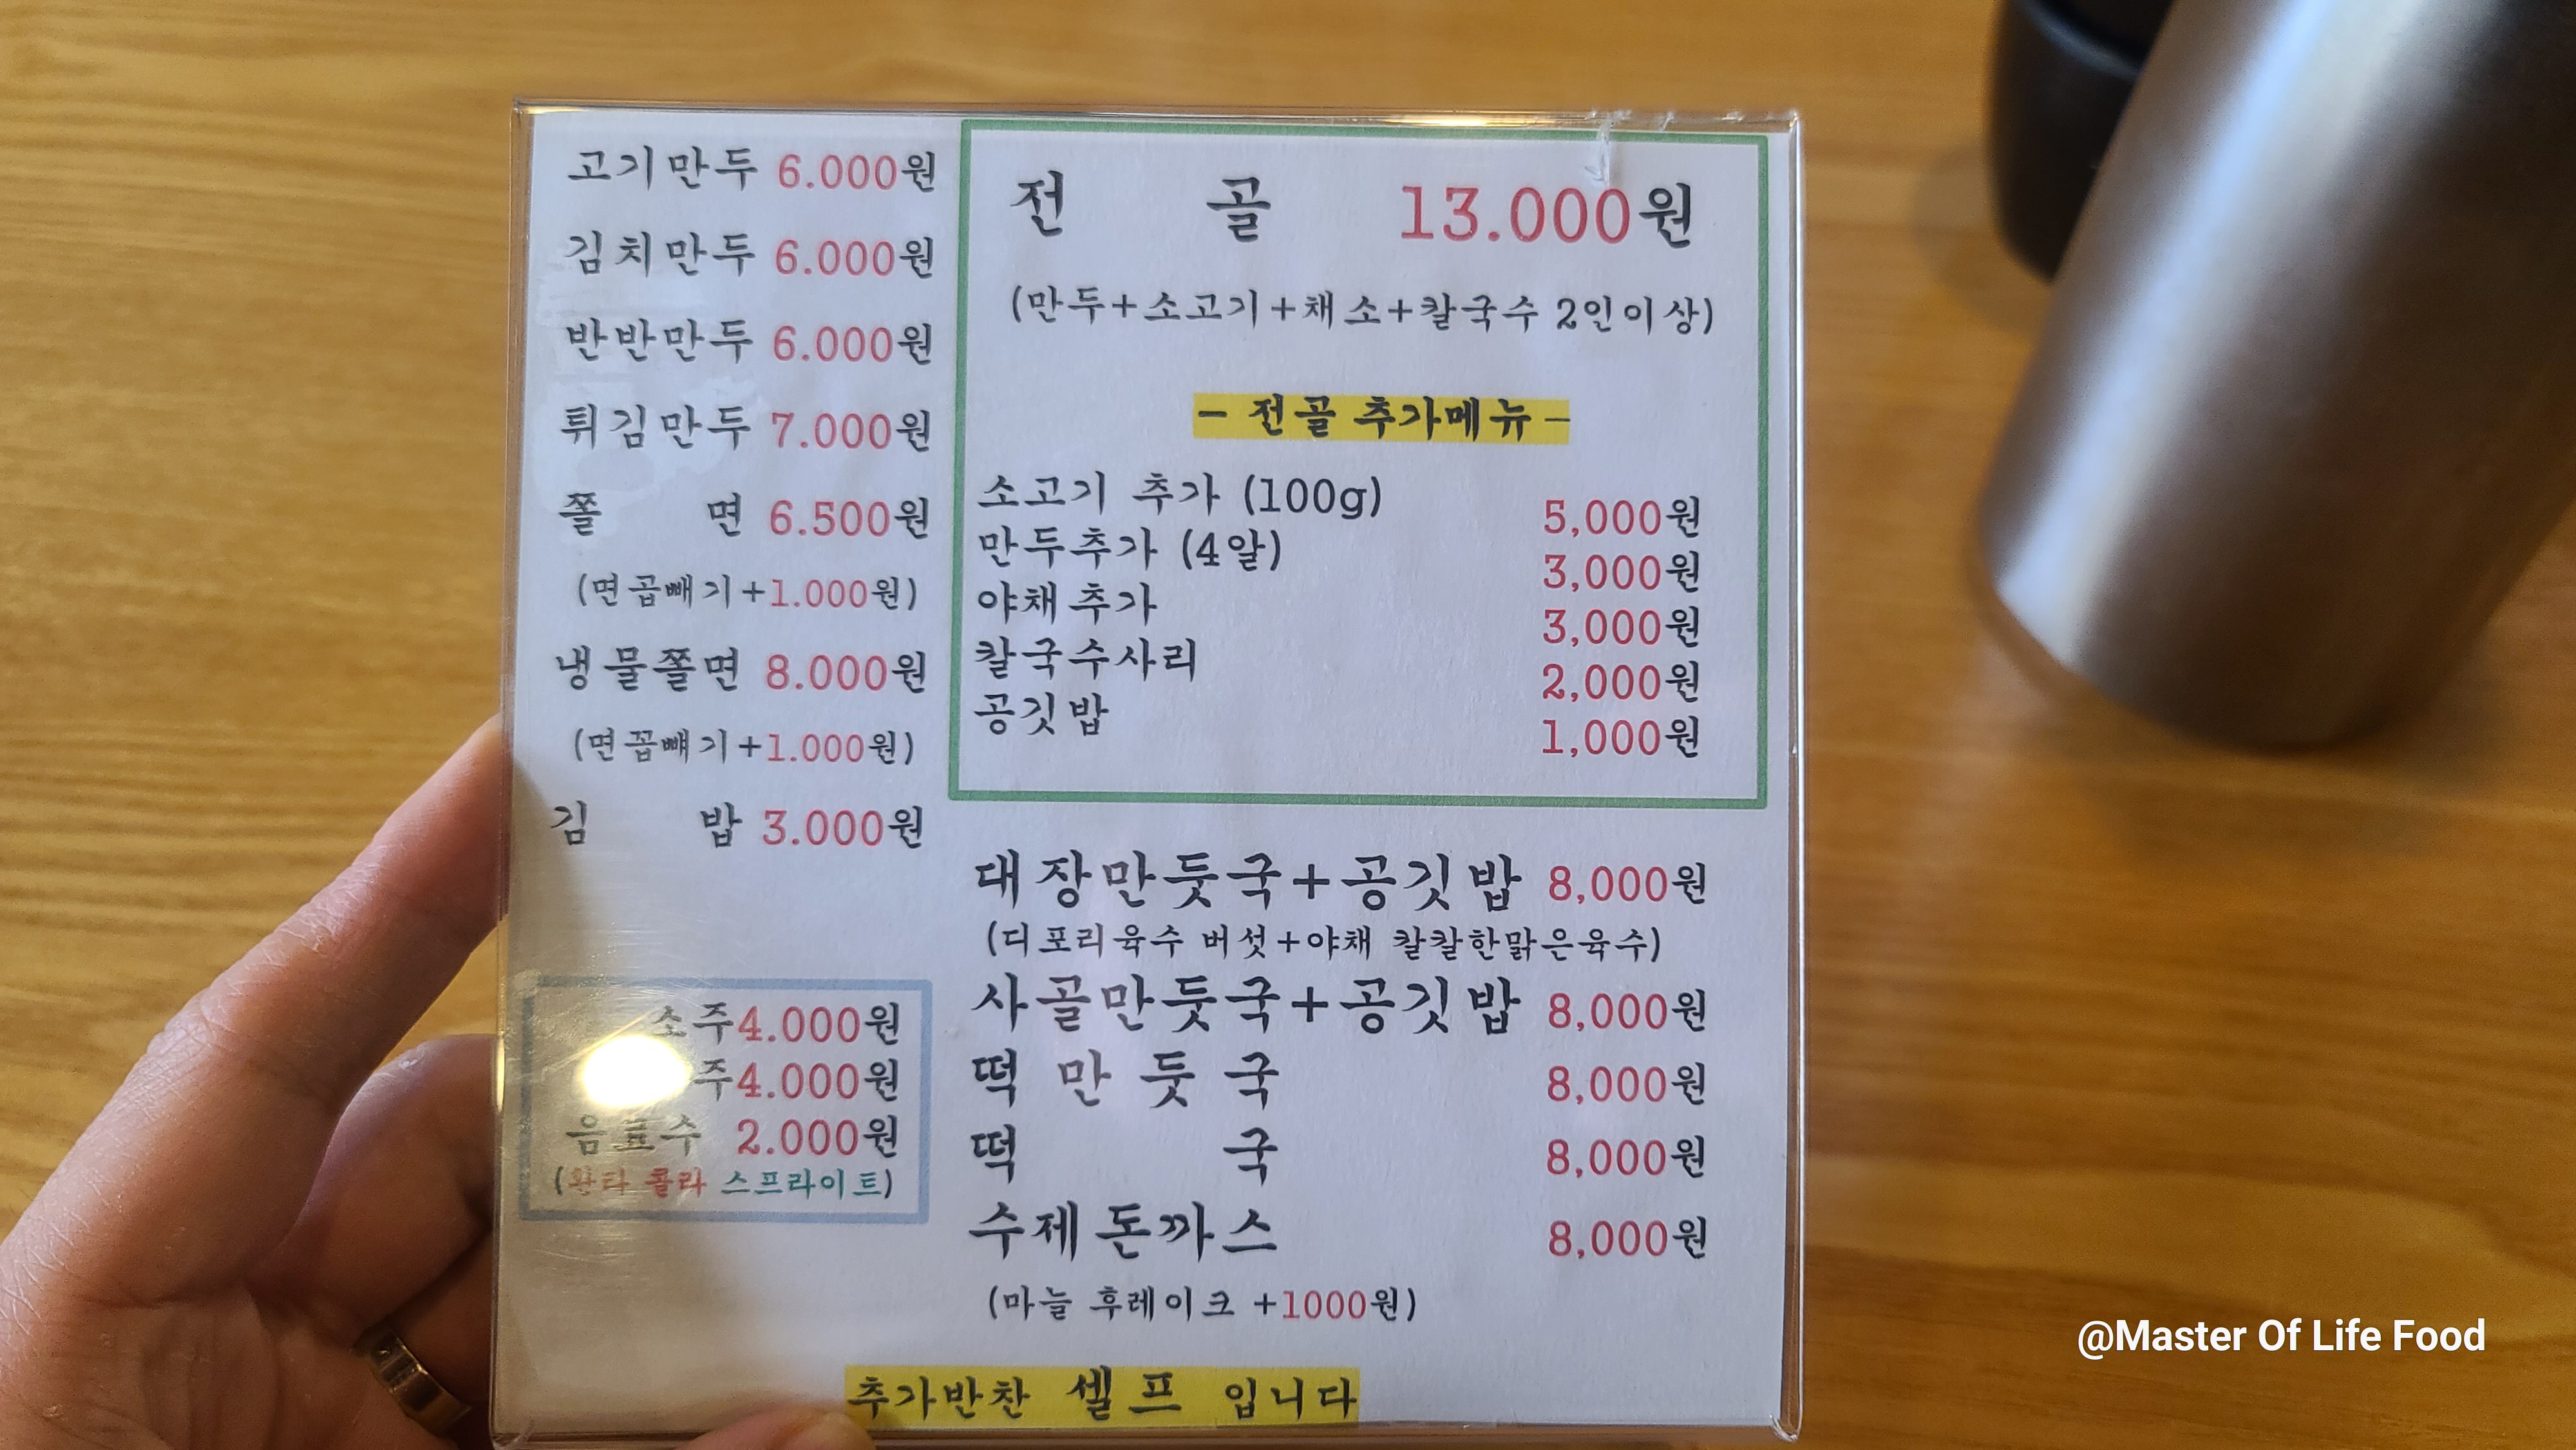 고기만두 6.000원
김치만두 6.000원
반반만두 6.000원
튀김만두 7.000원
쫄 면 6.500원
(면곱빼기+1.000원)
냉물쫄면 8.000원
(면꼽빼기+1.000원)
김 밥 3.000원
소주4.000원
주4.000원
음료수 2.000원
(환타 콜라 스프라이트)
전 골 13.000원
(만두+소고기+채소+칼국수 2인이상)
- 전골 추가메뉴 -
소고기 추가 (100g) 5,000원
만두추가 (4알) 3,000원
야채추가 3,000원
칼국수사리 2,000원
공깃밥 1,000원
대장만둣국+공깃밥 8,000원
(디포리육수 버섯+야채 칼칼한맑은육수)
사골만둣국+공깃밥 8,000원
떡만둣국 8,000원
떡 국 8,000원
수제돈까스 8,000원
(마늘 후레이크 +1000원)
추가반찬 셀프 입니다
@Master Of Life Food